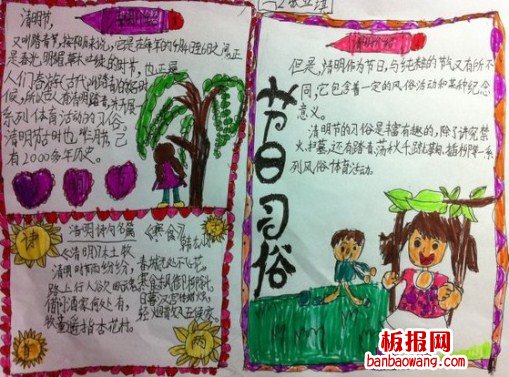 清明节,
又叫踏青节,按阳历来说,它是在每年的4月4日至6日之间,正
是春光明媚草木吐绿的时节,也正是
人们春游(古代叫踏青)的好时
候,所以古人有清明踏青,并开展一
系列体育活动的习俗。
清明节古时也叫
2000多年历史。
清明诗句名篇
《清明》
清明时节雨纷纷,
路上行人欲断魂。
借问酒家何处有,
牧童遥指杏花村。
《寒食》
春城无处不飞花,
寒食东风御柳斜。
日暮汉宫传蜡烛,
轻烟散入五侯家。
但是,清明作为节日,与纯粹的节气又有所不
同,它包含着一定的风俗活动和某种纪念
意义。
清明节的习俗是丰富有趣的,除了讲究禁
火、扫墓,还有踏青、荡秋千、蹴鞠、插柳等一系
列风俗体育活动。
节日习俗
板报网
banbaowang.com